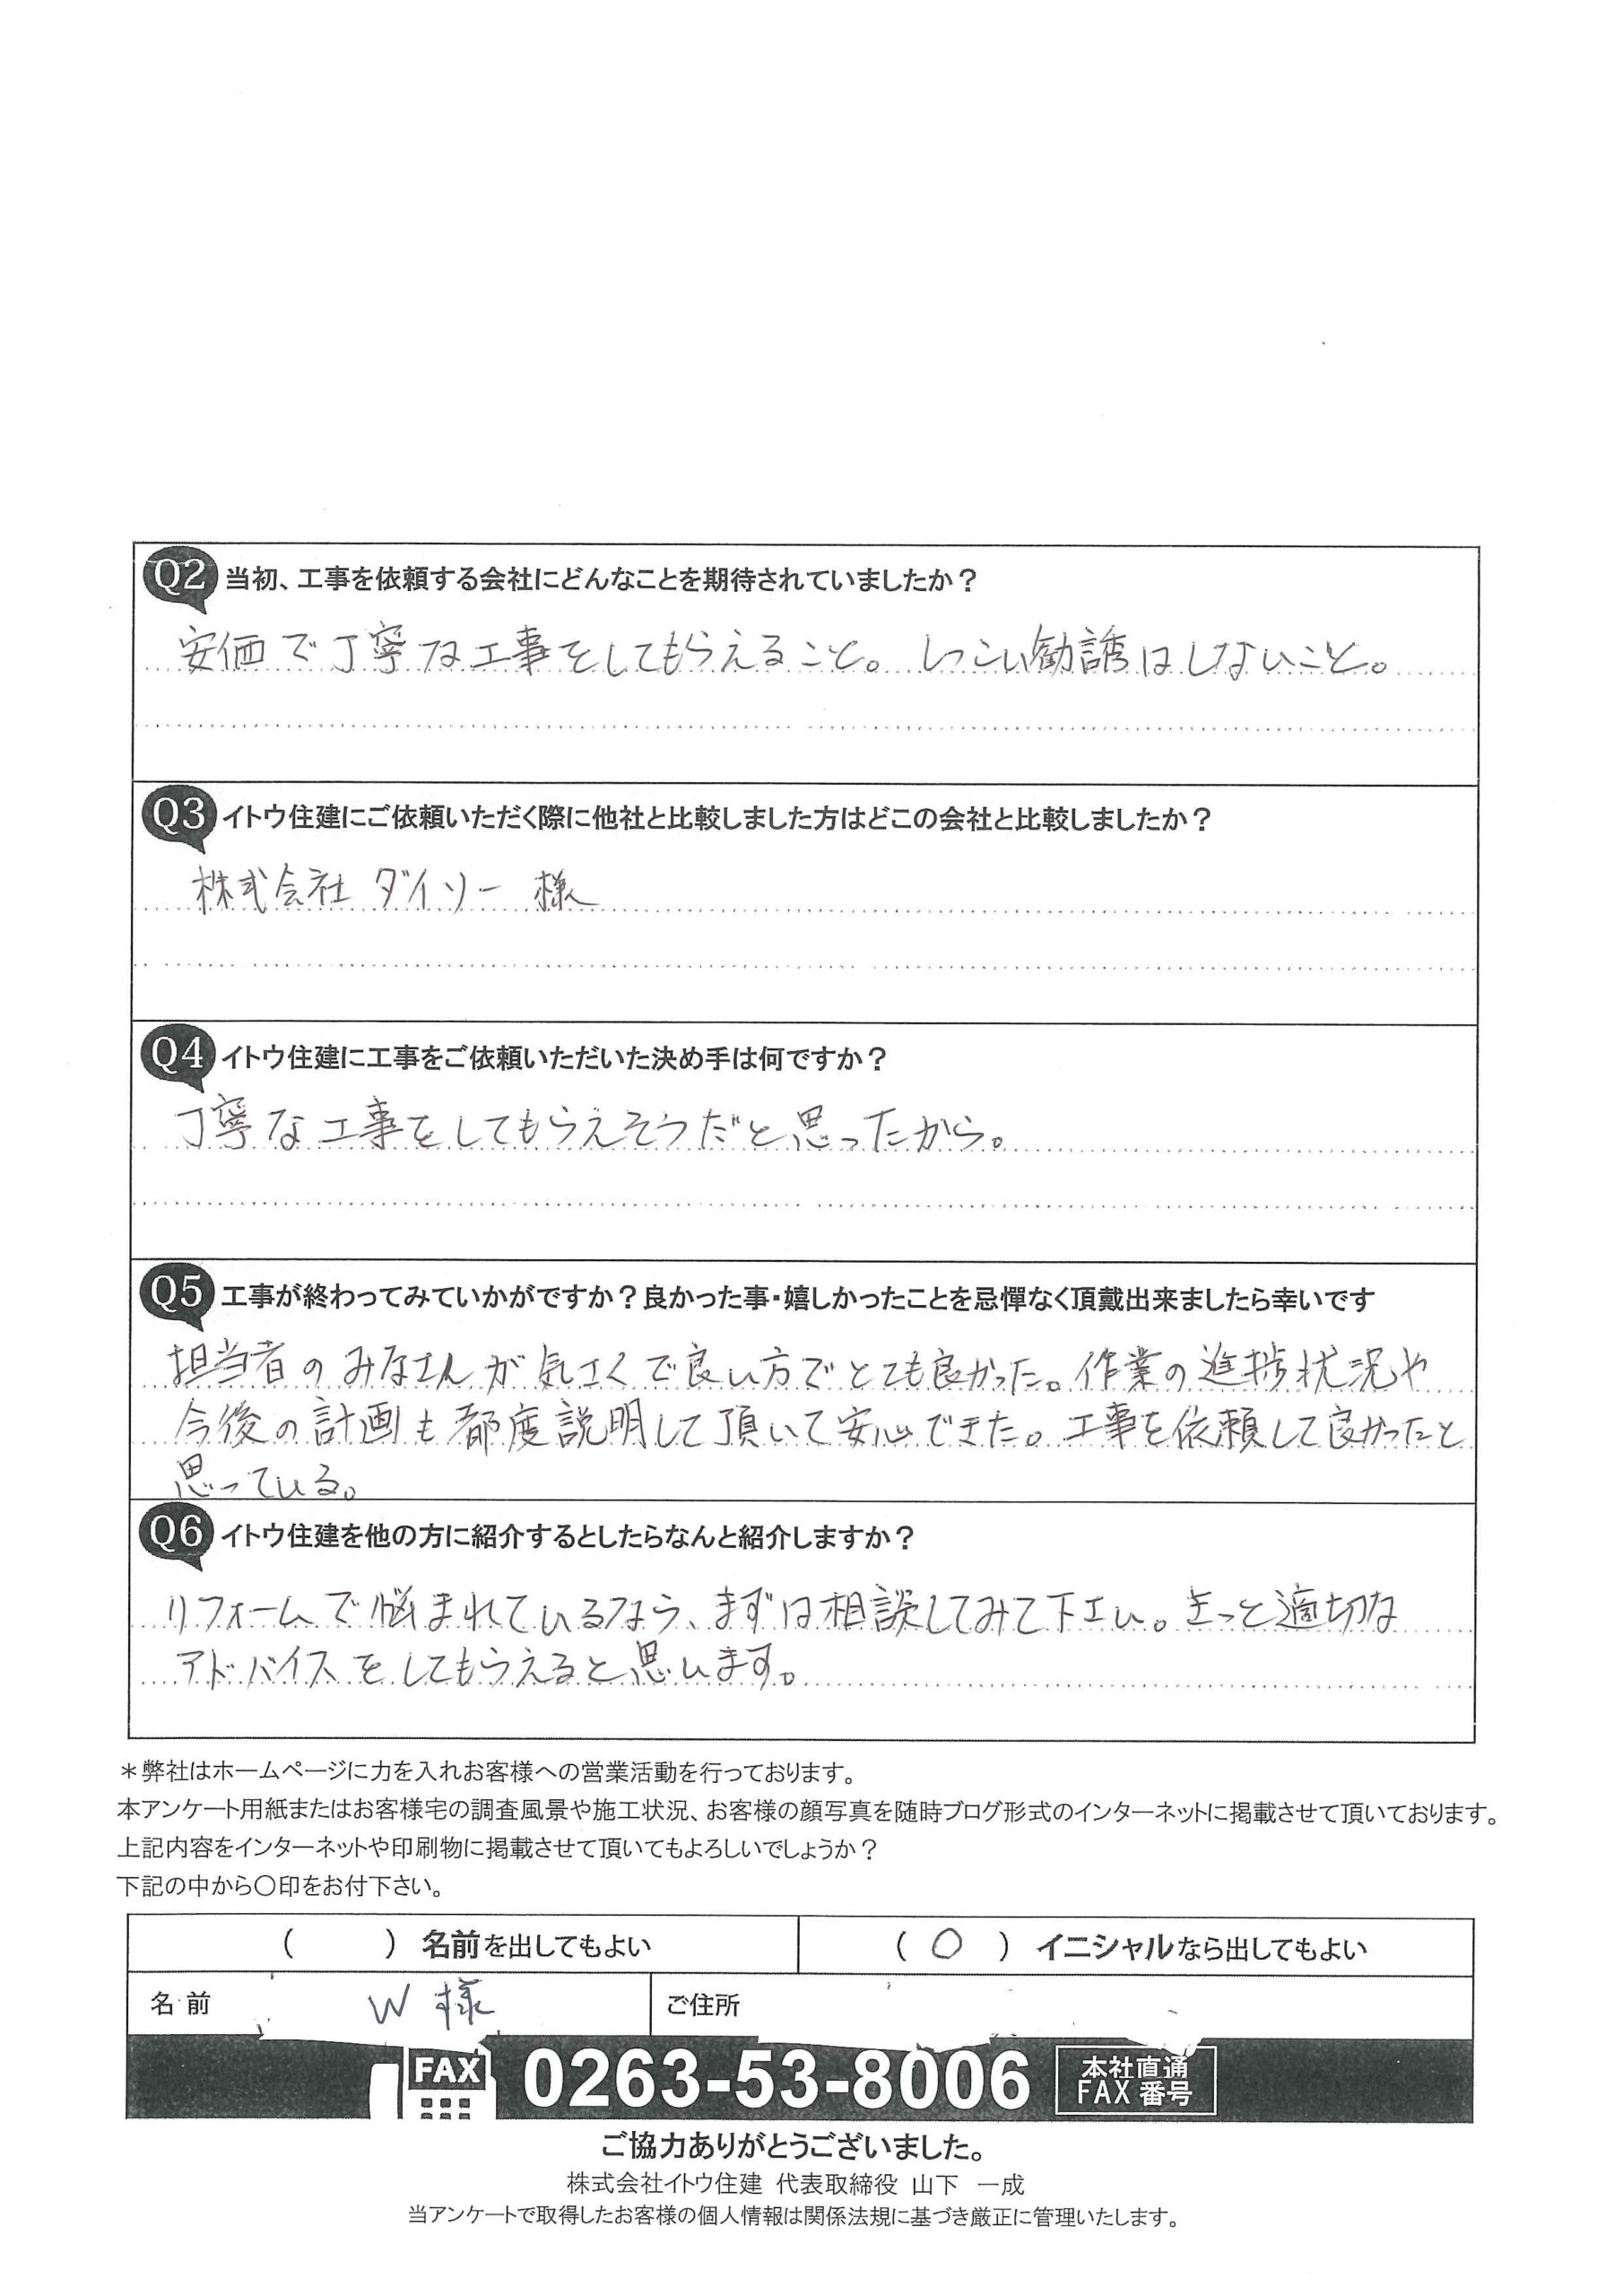 Q2 当初、工事を依頼する会社にどんなことを期待されていましたか?
安価で丁寧な工事をしてもらえること。しつこい勧誘はしないこと。
Q3 イトウ住建にご依頼いただく際に他社と比較しました方はどこの会社と比較しましたか?
株式会社 ダイソー 様
Q4 イトウ住建に工事をご依頼いただいた決め手は何ですか?
丁寧な工事をしてもらえそうだと思ったから。
Q5 工事が終わってみていかがですか?良かった事・嬉しかったことを忌憚なく頂戴出来ましたら幸いです
担当者のみなさんが気さくで良い方でとても良かった。作業の進捗状況や
今後の計画も都度説明して頂いて安心できた。工事を依頼して良かったと
思っている。
Q6 イトウ住建を他の方に紹介するとしたらなんと紹介しますか?
リフォームで悩まれているなら、まずは相談してみて下さい。きっと適切な
アドバイスをしてもらえると思います。
*弊社はホームページに力を入れお客様への営業活動を行っております。
本アンケート用紙またはお客様宅の調査風景や施工状況、お客様の顔写真を随時ブログ形式のインターネットに掲載させて頂いております。
上記内容をインターネットや印刷物に掲載させて頂いてもよろしいでしょうか?
下記の中から〇印をお付下さい。
( ) 名前を出してもよい ( 〇 ) イニシャルなら出してもよい
名前 W 様 ご住所
FAX 0263-53-8006 本社直通 FAX 番号
ご協力ありがとうございました。
株式会社イトウ住建 代表取締役 山下 一成
当アンケートで取得したお客様の個人情報は関係法規に基づき厳正に管理いたします。